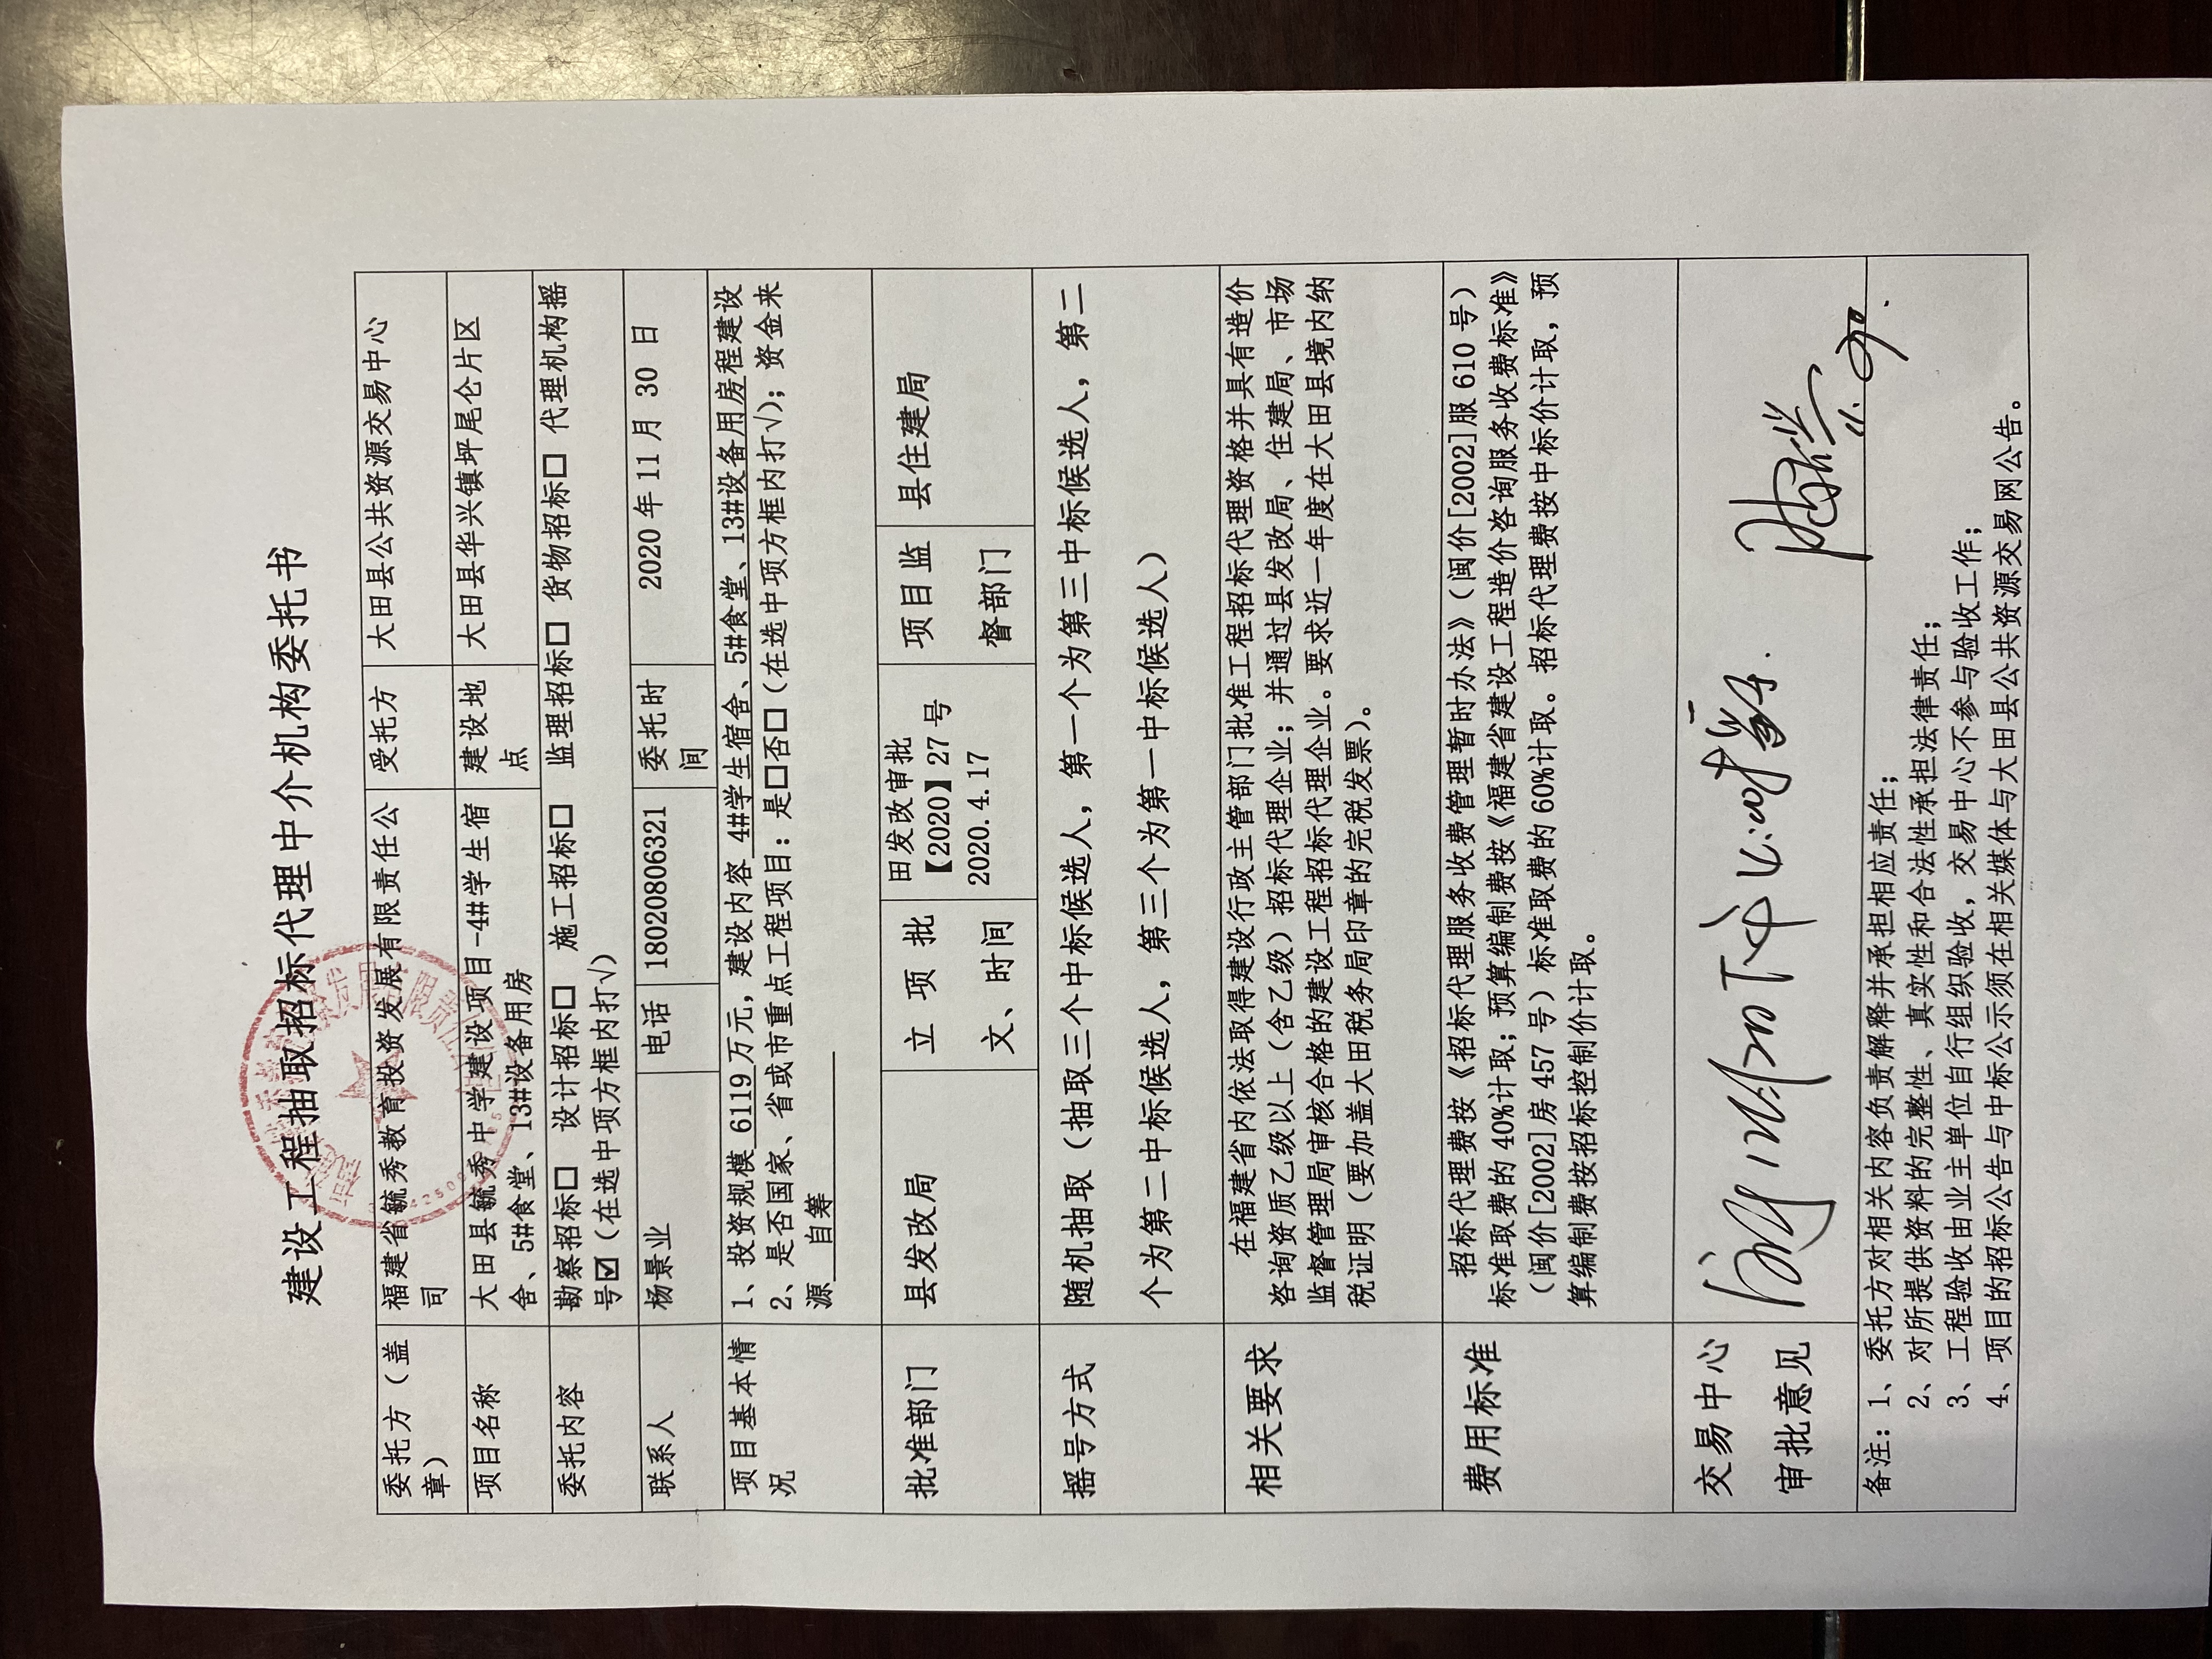 建设工程抽取招标代理中介机构委托书
委托方（盖章） 福建省毓秀教育投资发展有限责任公司 受托方 大田县公共资源交易中心
项目名称 大田县毓秀中学建设项目-4#学生宿舍、5#食堂、13#设备用房 建设地点 大田县华兴镇坪尾仑片区
委托内容 勘察招标□ 设计招标□ 施工招标□ 监理招标□ 货物招标□ 代理机构摇
号☑（在选中项方框内打√）
联系人 杨景业 电话 18020806321 委托时间 2020 年 11 月 30 日
项目基本情况 1、投资规模 6119 万元，建设内容 4#学生宿舍、5#食堂、13#设备用房程建设
2、是否国家、省或市重点工程项目：是□否□（在选中项方框内打√）；资金来
源 自筹
批准部门 县发改局 立项批文、时间 田发改审批【2020】27 号 2020.4.17 项目监督部门 县住建局
摇号方式 随机抽取（抽取三个中标候选人，第一个为第三中标候选人，第二
个为第二中标候选人，第三个为第一中标候选人）
相关要求 在福建省内依法取得建设行政主管部门批准工程招标代理资格并具有造价
咨询资质乙级以上（含乙级）招标代理企业；并通过县发改局、住建局、市场
监督管理局审核合格的建设工程招标代理企业。要求近一年度在大田县境内纳
税证明（要加盖大田税务局印章的完税发票）。
费用标准 招标代理费按《招标代理服务收费管理暂时办法》（闽价[2002]服 610 号）
标准取费的 40%计取；预算编制费按《福建省建设工程造价咨询服务收费标准》
（闽价[2002]房 457 号）标准取费的 60%计取。招标代理费按中标价计取，预
算编制费按招标控制价计取。
交易中心
审批意见
备注：1、委托方对相关内容负责解释并承担相应责任；
2、对所提供资料的完整性、真实性和合法性承担法律责任；
3、工程验收由业主单位自行组织验收，交易中心不参与验收工作；
4、项目的招标公告与中标公示须在相关媒体与大田县公共资源交易网公告。